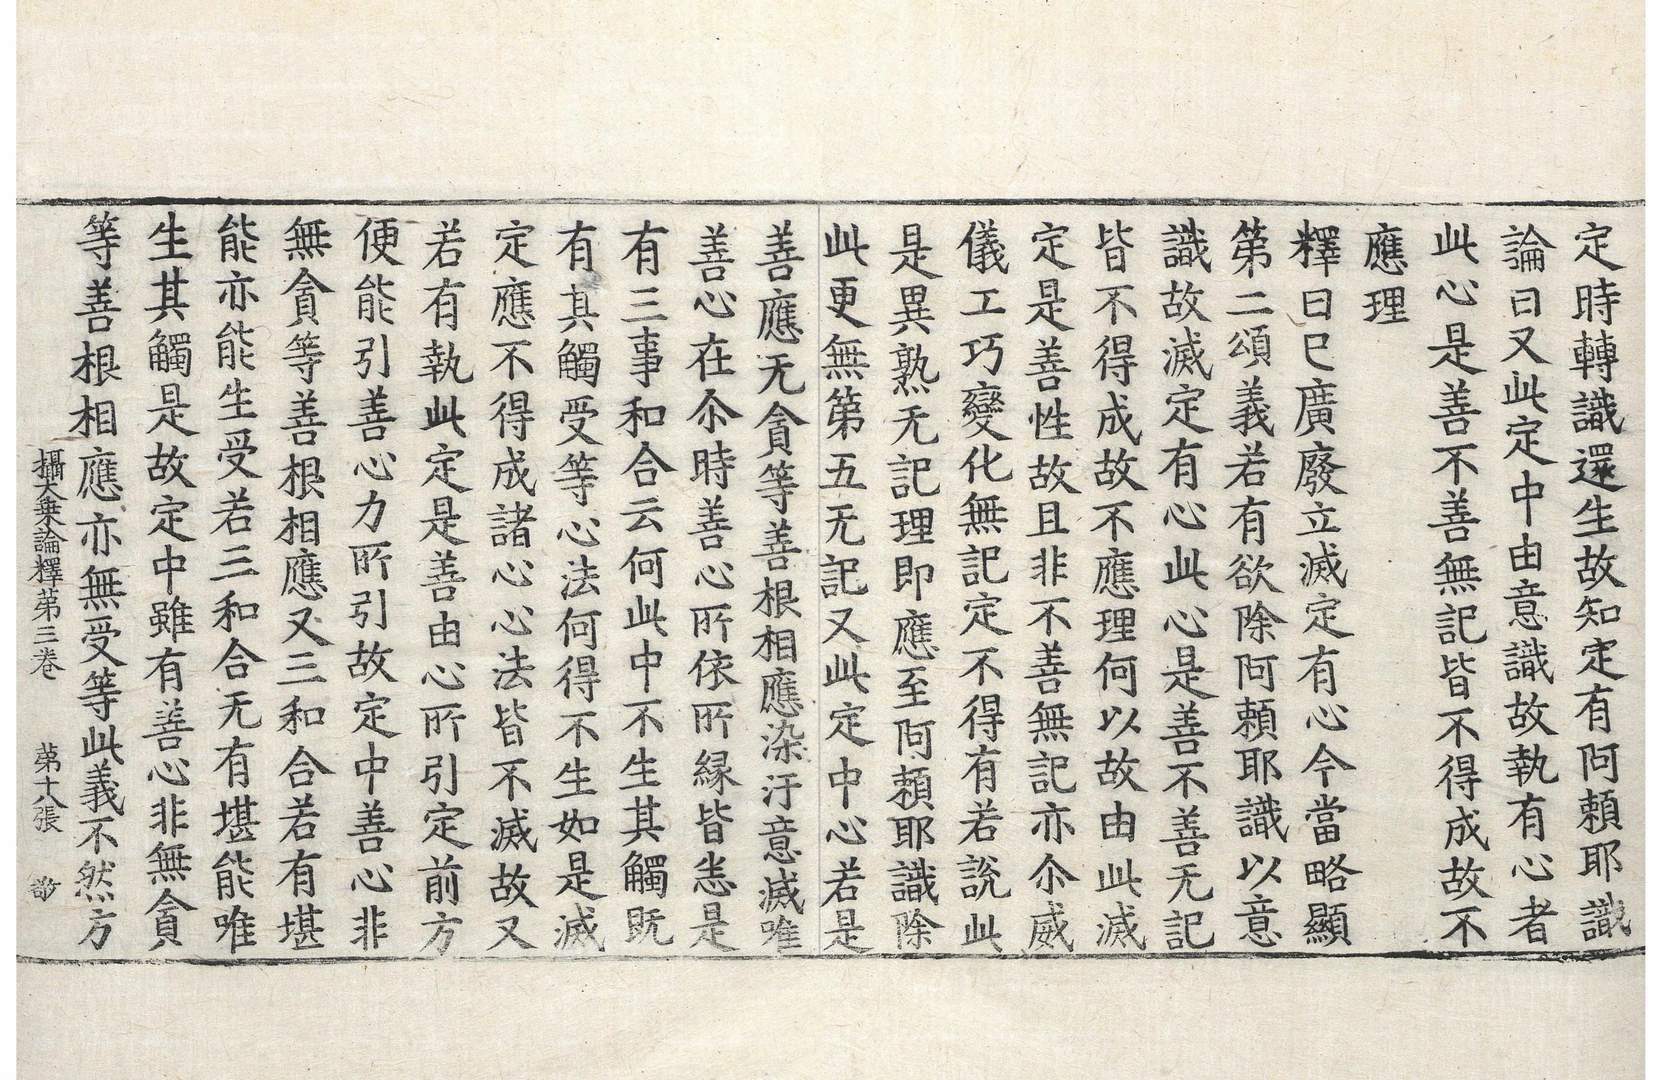 定時轉識還生故知定有阿頼耶識
論曰又此定中由意識故執有心者
此心是善不善無記皆不得成故不
應理
釋曰已廣廢立滅定有心今當略顯
第二頌義若有欲除阿頼耶識以意
識故滅定有心此心是善不善无記
皆不得成故不應理何以故由此滅
定是善性故且非不善無記亦尒威
儀工巧變化無記定不得有若說此
是異熟无記理即應至阿頼耶識除
此更無第五无記又此定中心若是
善應无貪等善根相應染汙意滅唯
善心在尒時善心所依所縁皆恙是
有三事和合云何此中不生其觸既
有其觸受等心法何得不生如是滅
定應不得成諸心心法皆不滅故又
若有執此定是善由心所引定前方
便能引善心力所引故定中善心非
無貪等善根相應又三和合若有堪
能亦能生受若三和合无有堪能唯
生其觸是故定中雖有善心非無貪
等善根相應亦無受等此義不然方
攝大乗論釋第三卷 第十八張 㪣